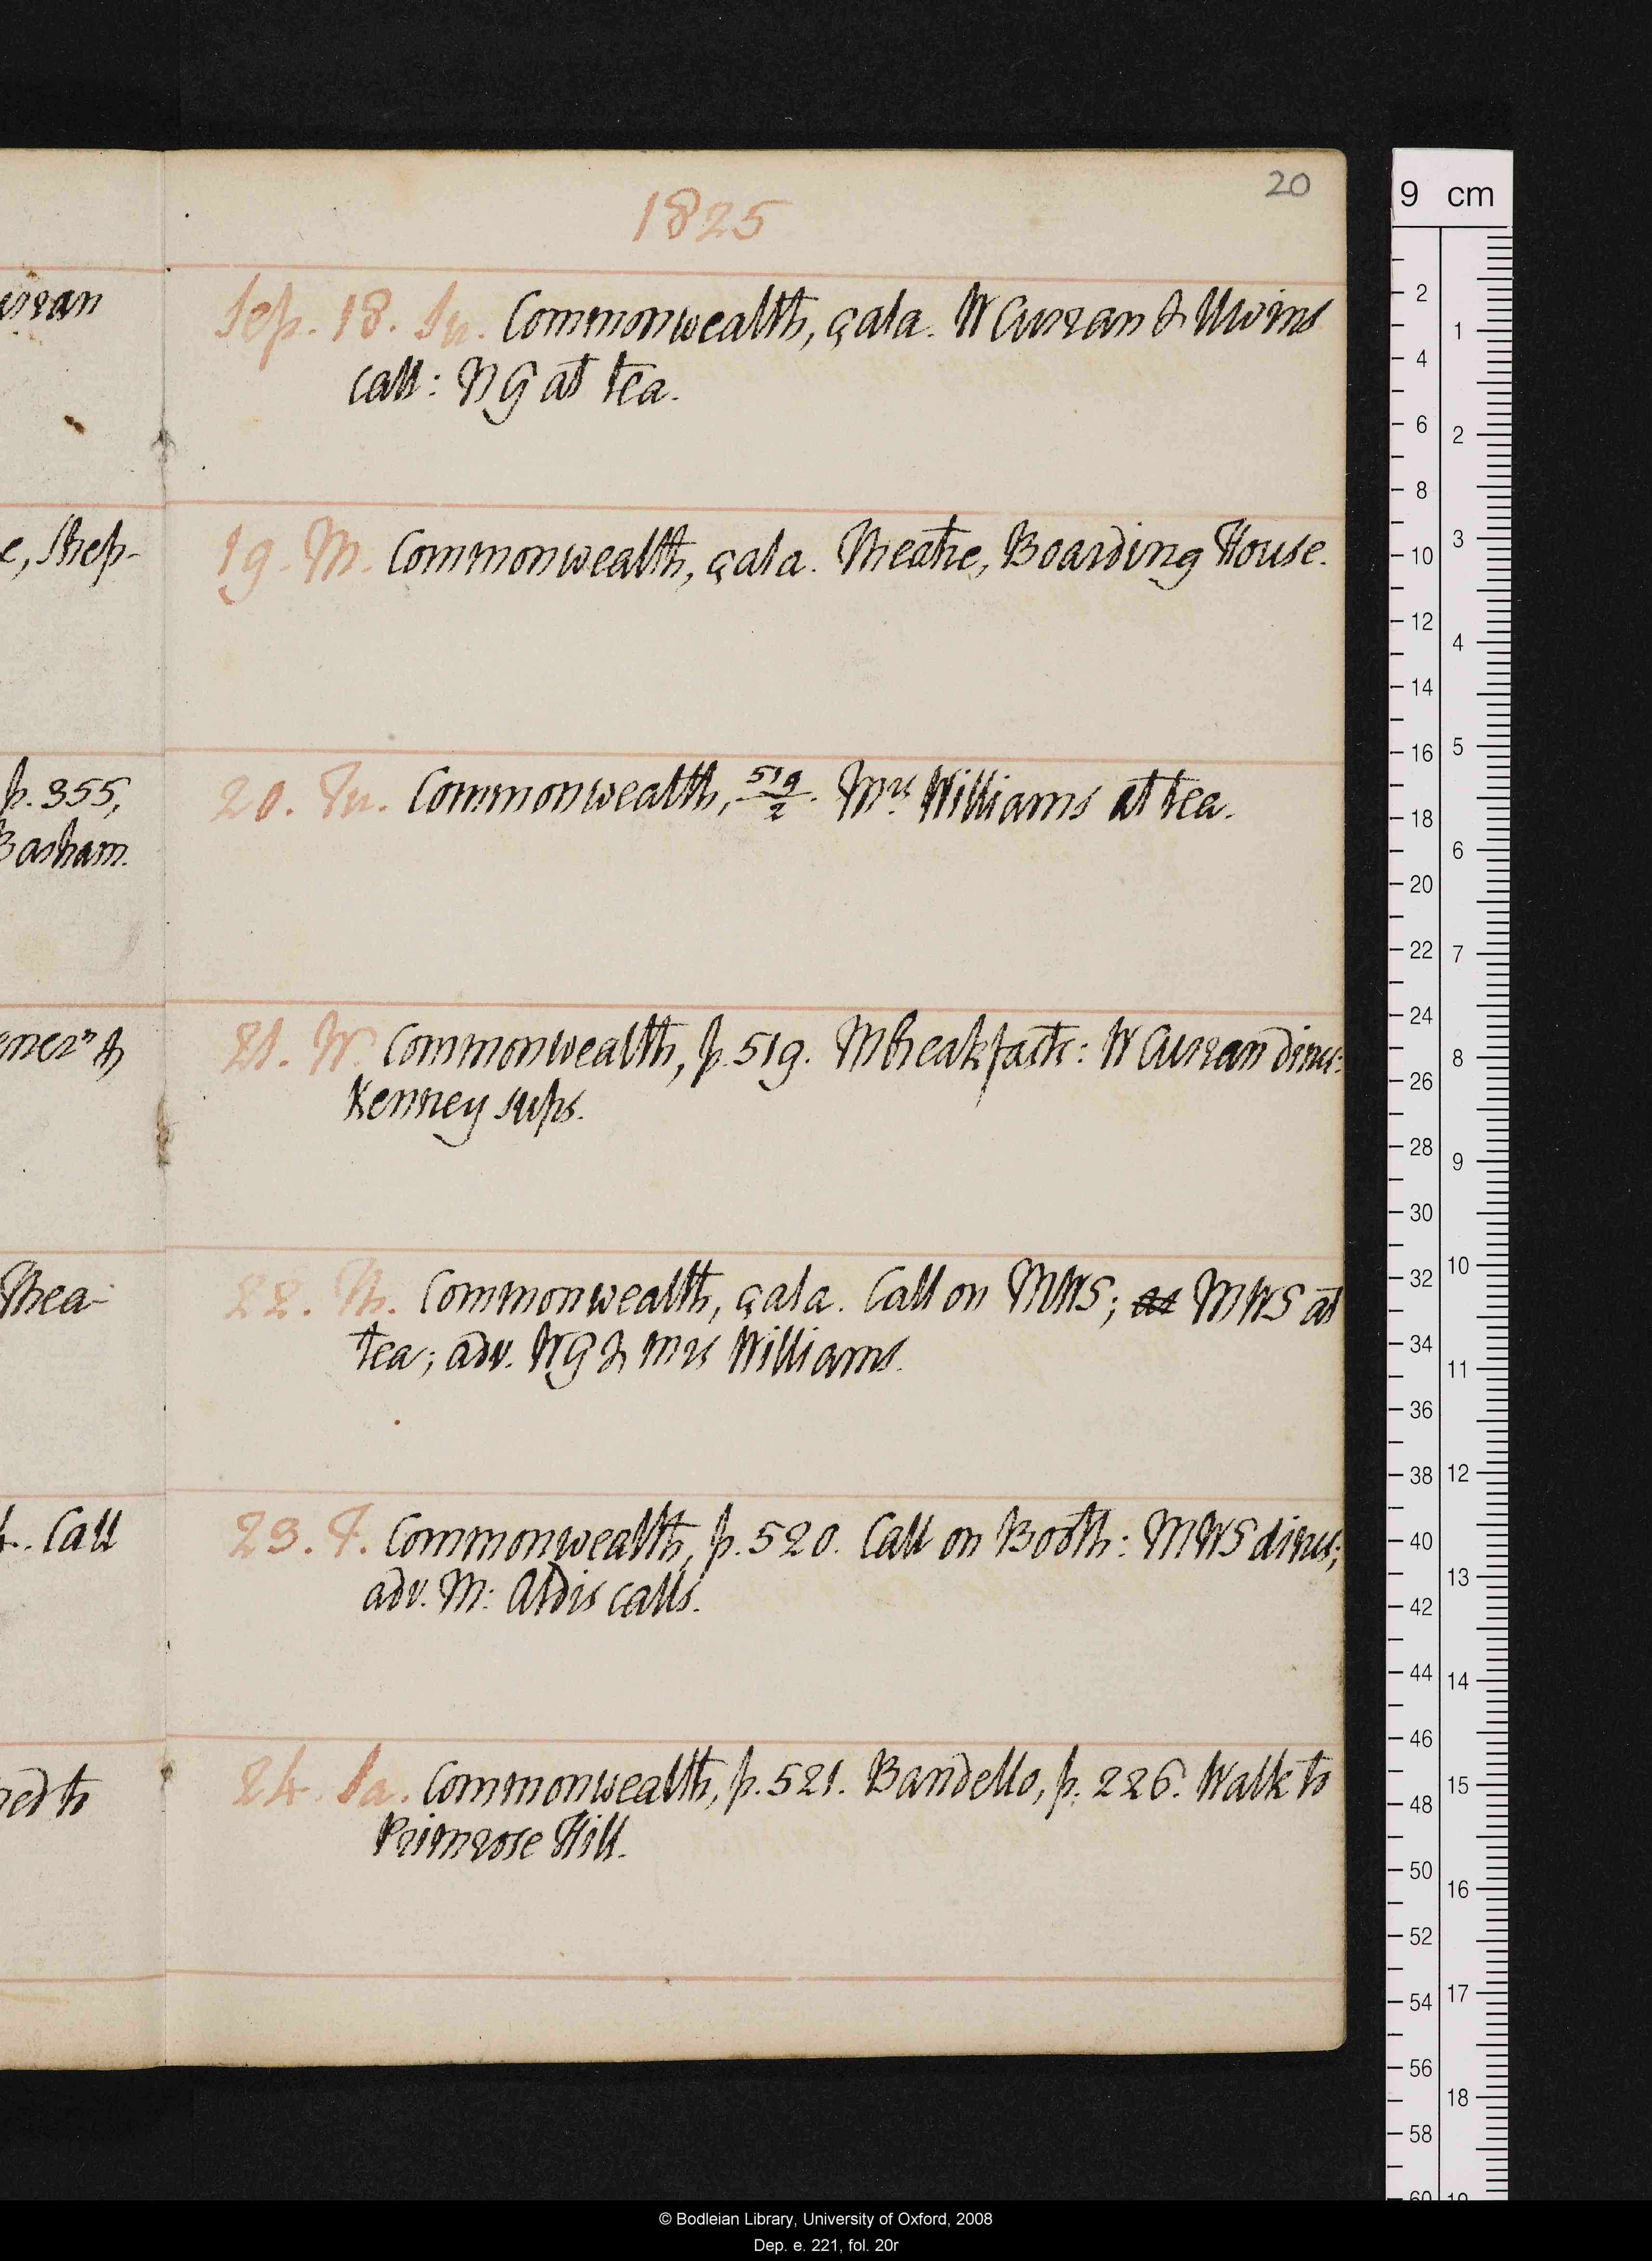 20
1825
urran
Sep. 18. Su. Commonwealth, çala. W Curran & Uwins
call: N G at tea.
e, Shep-
19. M. Commonwealth, çala. Theatre, Boarding House.
p. 355,
20. Tu. Commonwealth, 519/2. Mrs Williams at tea.
Basham.
21. W. Commonwealth, p. 519. M breakfasts: W Curran dines:
Kenney sups.
Thea-
22. Th. Commonwealth, çala. Call on MWS; at MWS at
tea; adv. W G & Mrs Williams.
Call
23. F. Commonwealth, p. 520. Call on Booth: MWS dines;
adv. M: Aldis calls.
24. Sa. Commonwealth, p. 521. Bandello, p. 226. Walk to
Primrose Hill.
9 cm
2
4
6
8
10
12
14
16
18
20
22
24
26
28
30
32
34
36
38
40
42
44
46
48
50
52
54
56
58
60
1
2
3
4
5
6
7
8
9
10
11
12
13
14
15
16
17
18
19
© Bodleian Library, University of Oxford, 2008
Dep. e. 221, fol. 20r